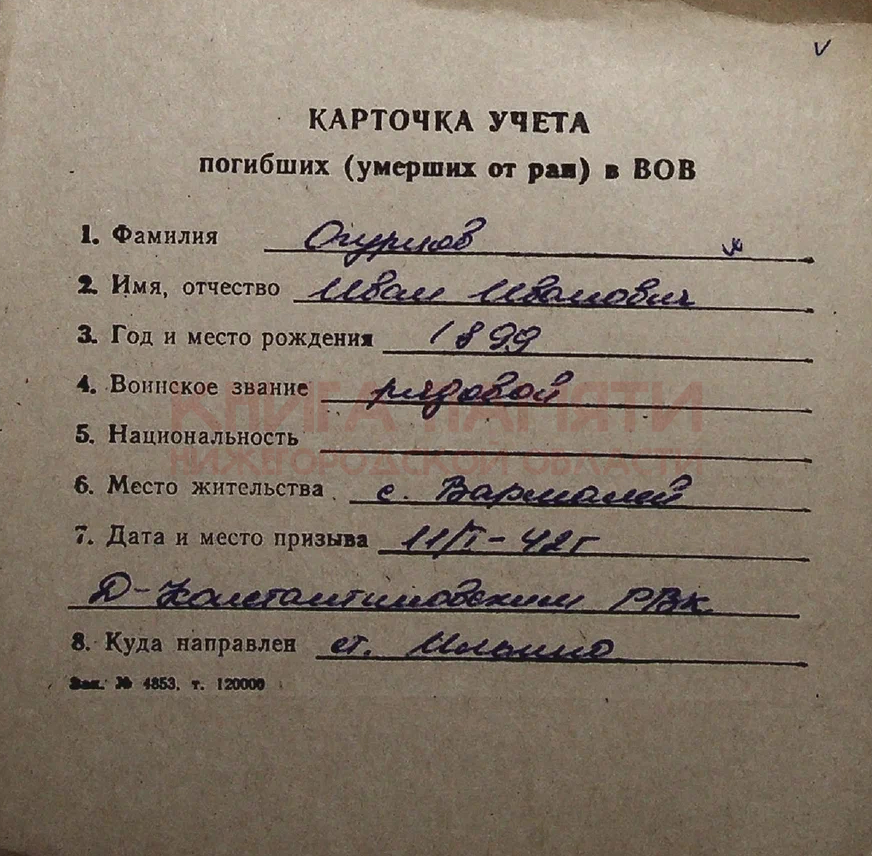 КАРТОЧКА УЧЕТА
погибших (умерших от ран) в ВОВ
1. Фамилия Огурцов
2. Имя, отчество Иван Иванович
3. Год и место рождения 1899
4. Воинское звание рядовой
КНИГА ПАМЯТИ
5. Национальность
НИЖЕГОРОДСКОЙ ОБЛАСТИ
6. Место жительства с. Вармалей
7. Дата и место призыва 11/I-42г
Д-Константиновским РВК
8. Куда направлен ст. Ильино
Зак. № 4853. т. 120000